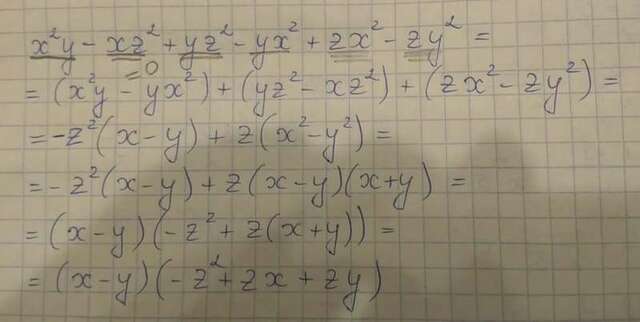 x²y - xz² + yz² - yx² + zx² - zy² =
= 0
= (x²y - yx²) + (yz² - xz²) + (zx² - zy²) =
= -z²(x-y) + z(x²-y²) =
= -z²(x-y) + z(x-y)(x+y) =
= (x-y)(-z² + z(x+y)) =
= (x-y)(-z² + zx + zy)